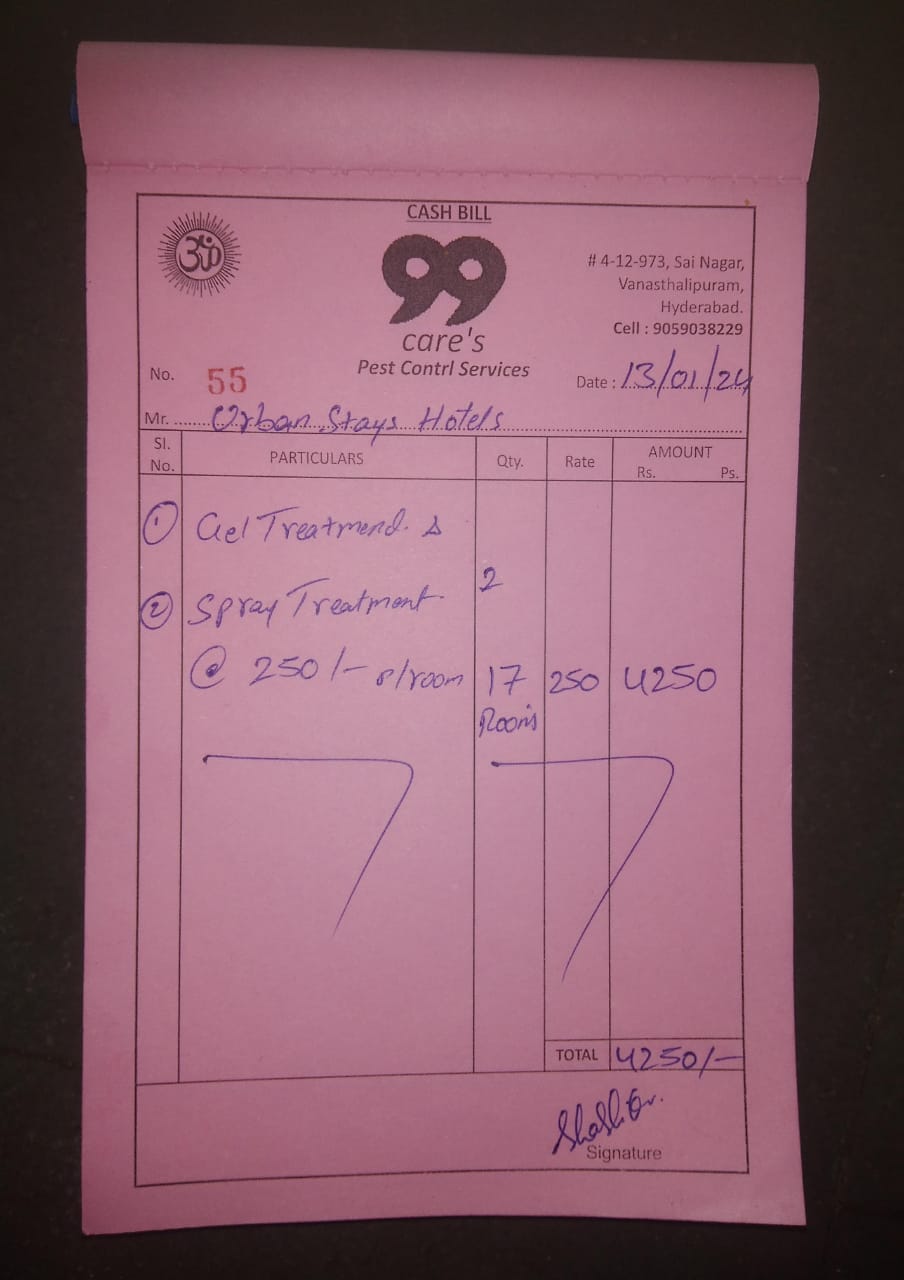 CASH BILL
ॐ
99
care's
Pest Contrl Services
# 4-12-973, Sai Nagar,
Vanasthalipuram,
Hyderabad.
Cell : 9059038229
No. 55
Date : 13/01/24
Mr. Urban Stays Hotels
Sl. No. PARTICULARS Qty. Rate AMOUNT Rs. Ps.
① Gel Treatmend. &
② Spray Treatment 2
@ 250/- p/room 17 250 4250
Rooms
TOTAL 4250/-
Signature